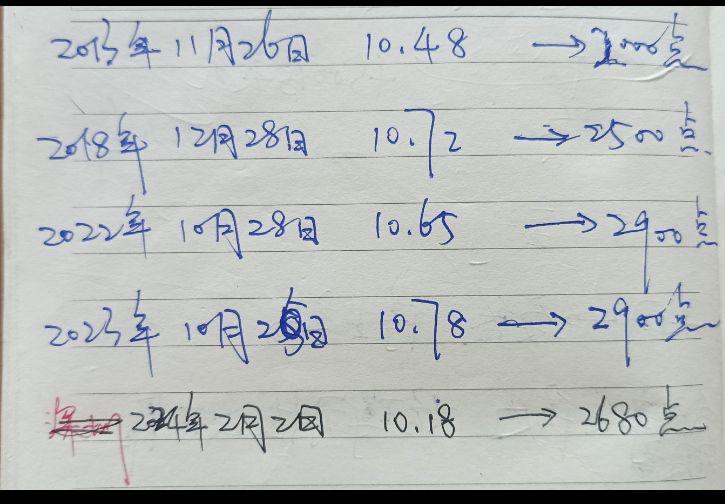 2013年 11月26日 10.48 → 2000点
2018年 12月28日 10.72 → 2500点
2022年 10月28日 10.65 → 2900点
2023年 10月 日 10.78 → 2900点
2024年2月2日 10.18 → 2680点